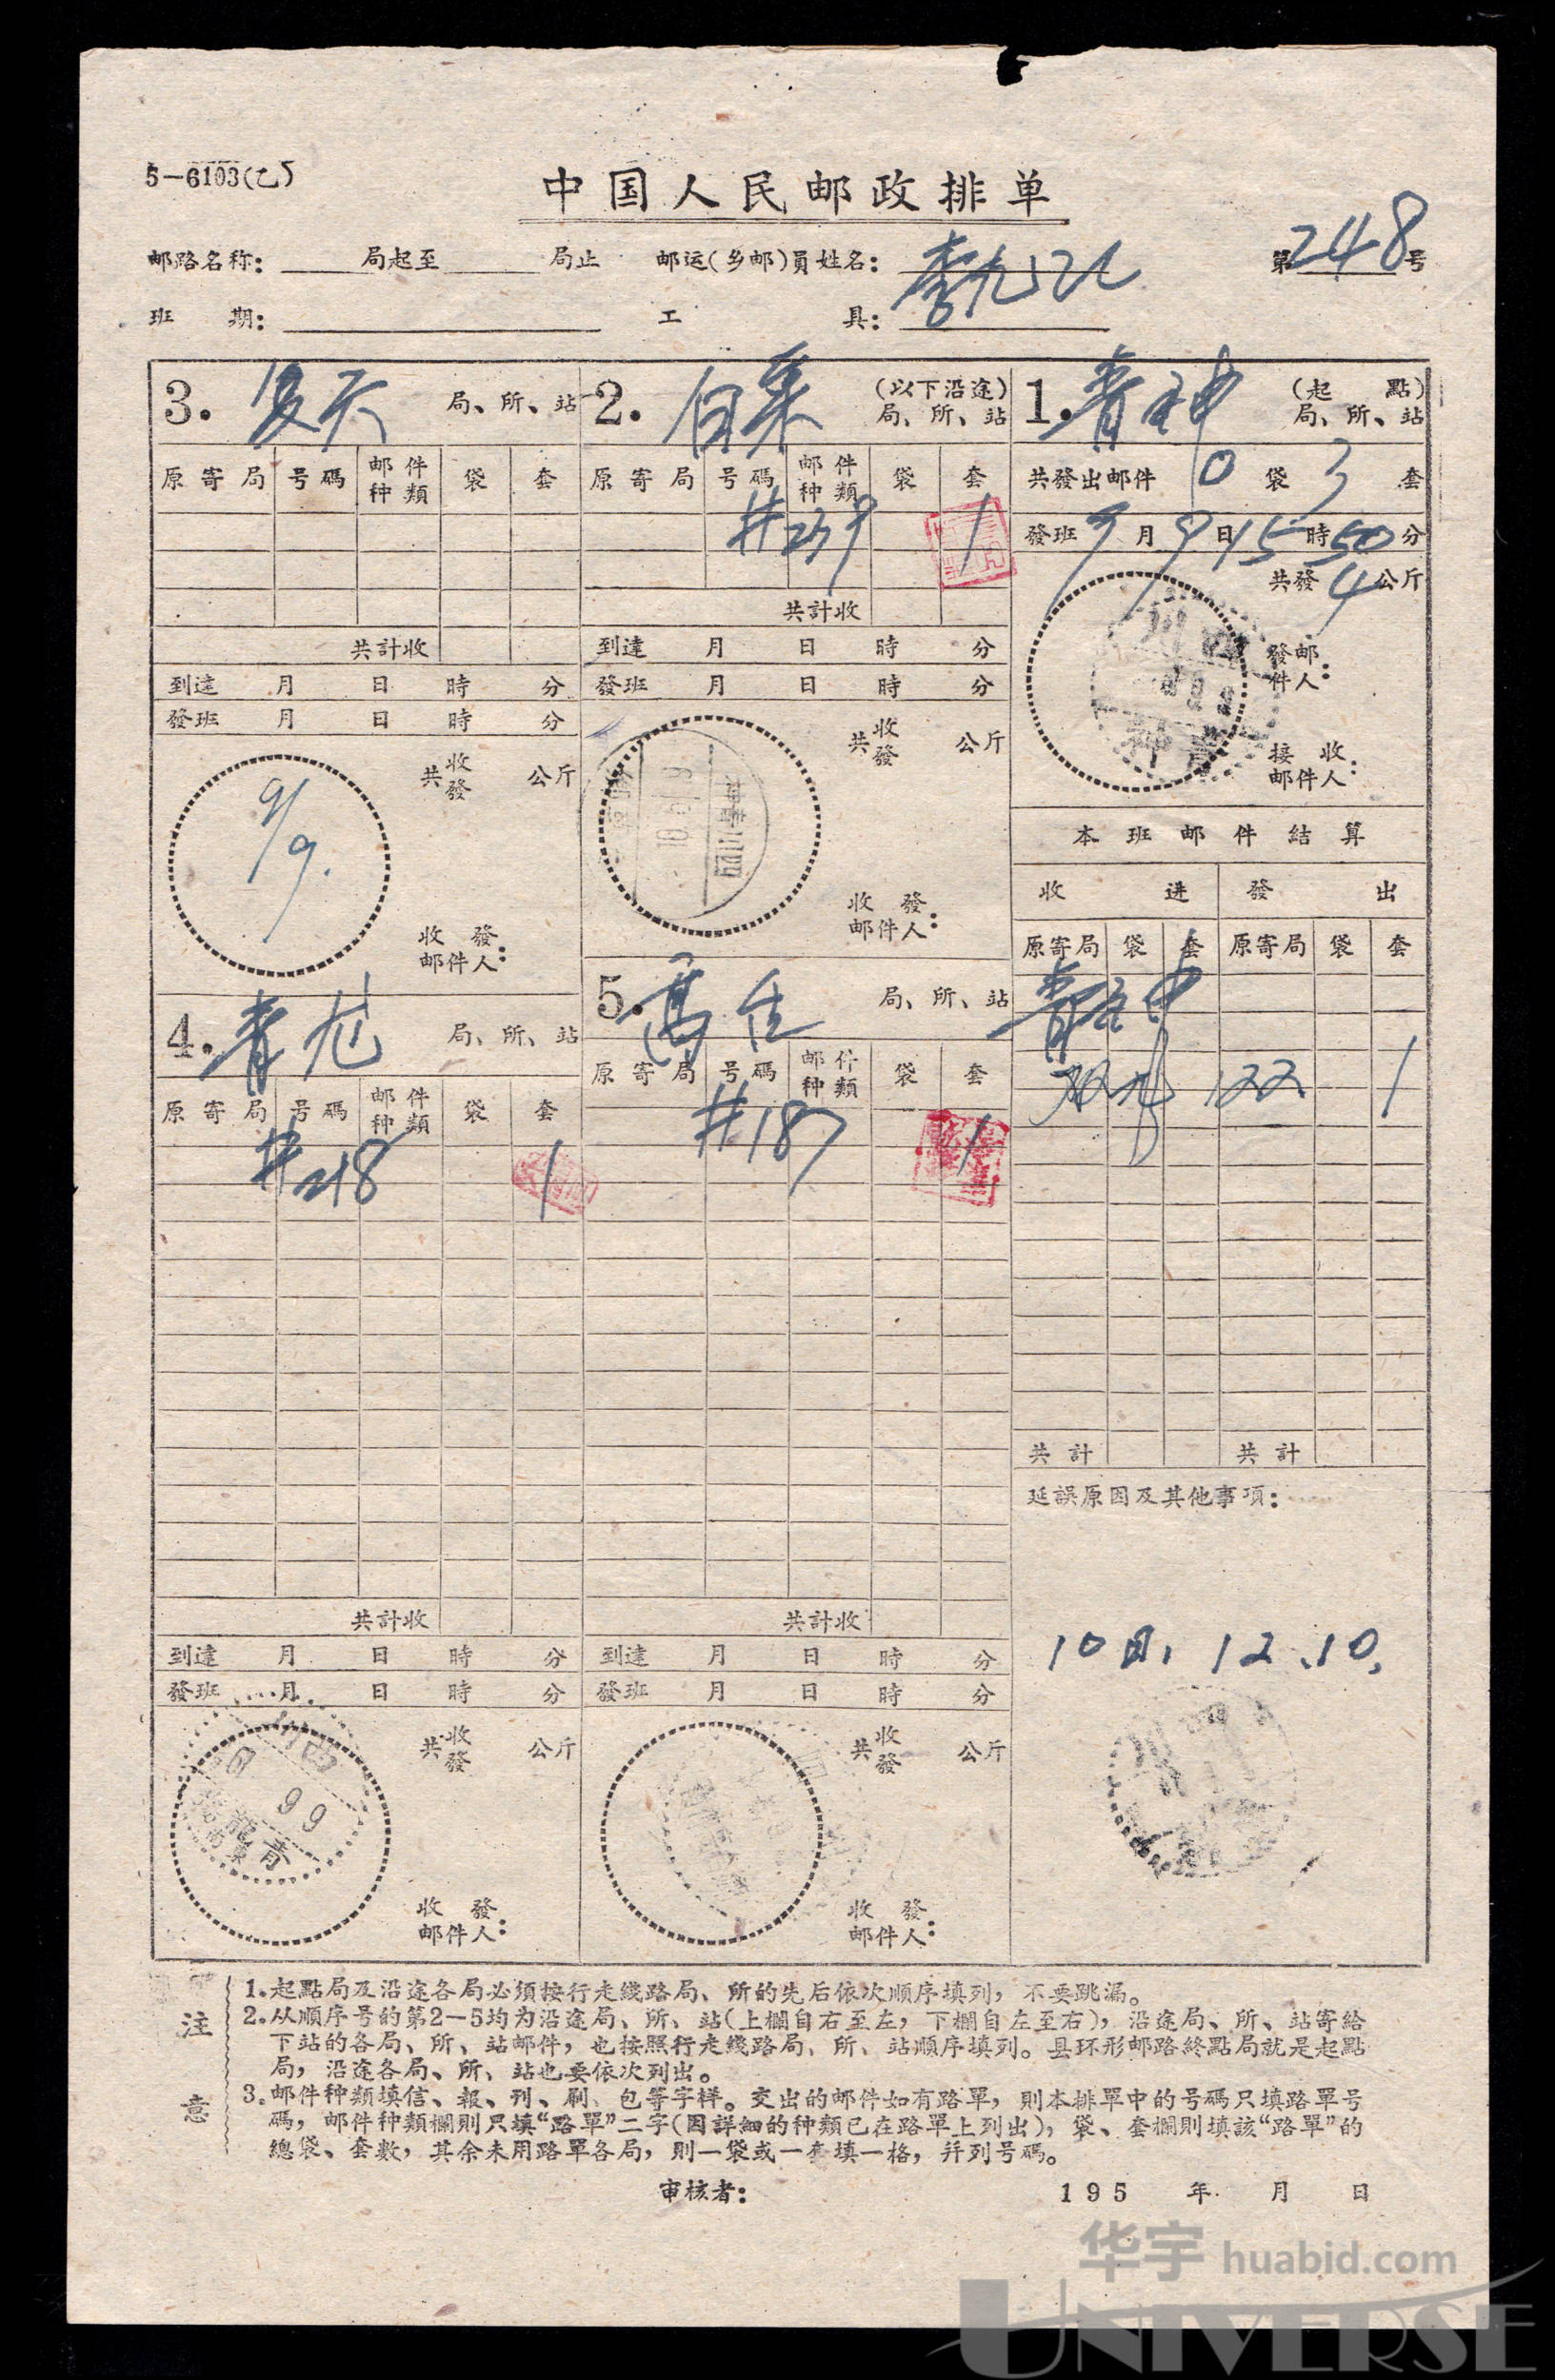 5-6103(乙)
中国人民邮政排单
邮路名称: 局起至 局止 邮运(乡邮)員姓名: 第248号
班 期: 工 具:
1. 青神 (起 點) 局、所、站
共發出邮件 0 袋 3 套
發班 9 月 9 日 15 時 50 分
共發 4 公斤
發邮件人:
接收邮件人:
本班邮件結算
收 进 發 出
原寄局 袋 套 原寄局 袋 套
青神
122 1
共計 共計
延誤原因及其他事項:
10日, 12.10.
2. 白果 (以下沿途) 局、所、站
原寄局 号碼 邮件种類 袋 套
#239 1
共計收
到達 月 日 時 分
發班 月 日 時 分
共收發 公斤
四川青神
收發邮件人:
3. 复兴 局、所、站
原寄局 号碼 邮件种類 袋 套
共計收
到達 月 日 時 分
發班 月 日 時 分
共收發 公斤
9/9.
收發邮件人:
4. 青龙 局、所、站
原寄局 号碼 邮件种類 袋 套
#218 1
共計收
到達 月 日 時 分
發班 月 日 時 分
共收發 公斤
四川
9 9
青龍
收發邮件人:
5. 高台 局、所、站
原寄局 号碼 邮件种類 袋 套
#187 1
共計收
到達 月 日 時 分
發班 月 日 時 分
共收發 公斤
收發邮件人:
注意
1.起點局及沿途各局必須按行走綫路局、所的先后依次順序填列，不要跳漏。
2.从順序号的第2—5均为沿途局、所、站(上欄自右至左，下欄自左至右)，沿途局、所、站寄給
下站的各局、所、站邮件，也按照行走綫路局、所、站順序填列。县环形邮路終點局就是起點
局，沿途各局、所、站也要依次列出。
3.邮件种類填信、報、刊、刷、包等字样。交出的邮件如有路單，則本排單中的号碼只填路單号
碼，邮件种類欄則只填“路單”二字(因詳細的种類已在路單上列出)，袋、套欄則填該“路單”的
總袋、套數，其余未用路單各局，則一袋或一套填一格，幷列号碼。
审核者: 195 年 月 日
华宇 huabid.com
UNIVERSE